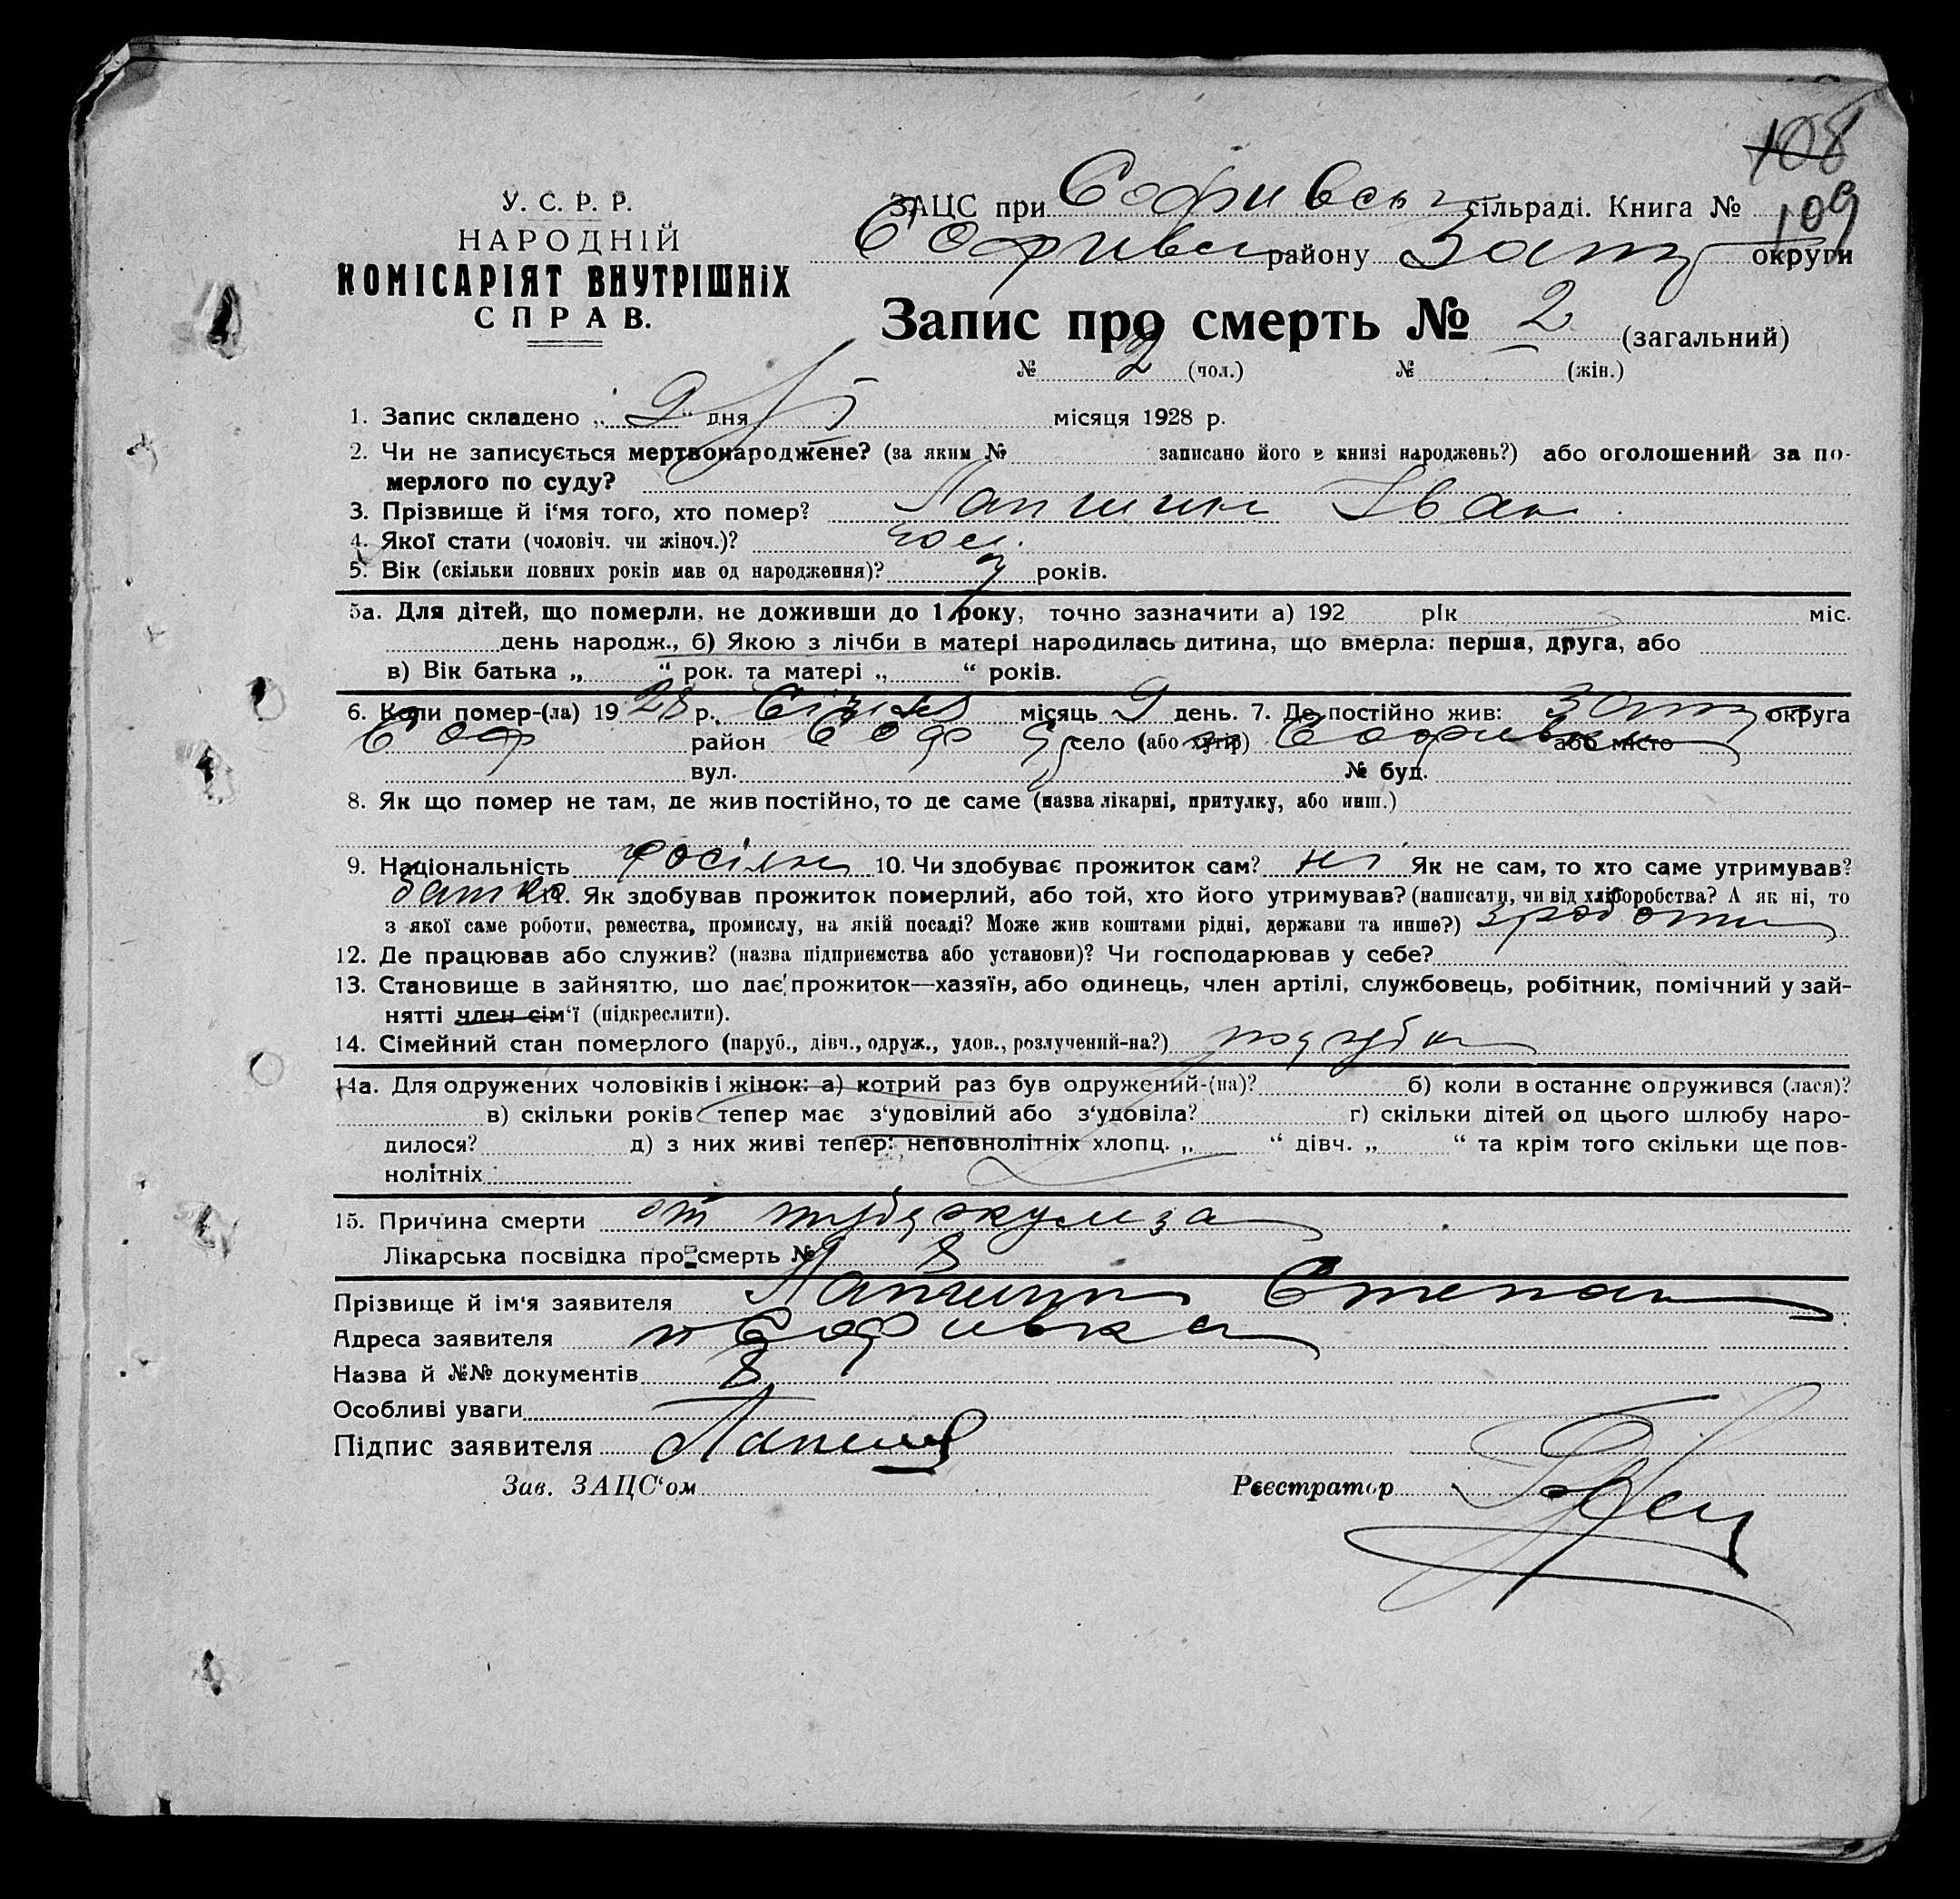 108
109
У. С. Р. Р.
НАРОДНІЙ
КОМІСАРІЯТ ВНУТРІШНІХ
СПРАВ.
ЗАЦС при Софиївськ сільраді. Книга №
Софиївс району Зап округи
Запис про смерть № 2 (загальний)
№ 2 (чол.) № — (жін.)
1. Запис складено „ 9 “ дня I місяця 1928 р.
2. Чи не записується мертвонароджене? (за яким № записано його в книзі народжень?) або оголошений за по-
мерлого по суду?
3. Прізвище й і‘мя того, хто помер? Лапшин Іван
4. Якої стати (чоловіч. чи жіноч.)? чол.
5. Вік (скільки повних років мав од народження)? років.
5а. Для дітей, що померли, не доживши до 1 року, точно зазначити а) 192 рік міс.
день народж., б) Якою з лічби в матері народилась дитина, що вмерла: перша, друга, або
в) Вік батька „ “ рок. та матері „ “ років.
6. Коли помер-(ла) 19 28 р. Січня місяць 9 день. 7. Де постійно жив: Зап округа
Соф район Соф село (або хутір) Софиївка або місто
вул. № буд.
8. Як що помер не там, де жив постійно, то де саме (назва лікарні, притулку, або инш.)
9. Національність росіян 10. Чи здобуває прожиток сам? ні Як не сам, то хто саме утримував?
батько 11. Як здобував прожиток померлий, або той, хто його утримував? (написати, чи від хліборобства? А як ні, то
з якої саме роботи, ремества, промислу, на якій посаді? Може жив коштами рідні, держави та инше?) з роботи
12. Де працював або служив? (назва підприємства або установи)? Чи господарював у себе?
13. Становище в зайняттю, що дає прожиток—хазяїн, або одинець, член артілі, службовець, робітник, помічний у зай-
нятті член сім‘ї (підкреслити).
14. Сімейний стан померлого (паруб., дівч., одруж., удов., розлучений-на?)
14а. Для одружених чоловіків і жінок: а) котрий раз був одружений-(на)? б) коли в останнє одружився (лася)?
в) скільки років тепер має з‘удовілий або з‘удовіла? г) скільки дітей од цього шлюбу наро-
дилося? д) з них живі тепер: неповнолітніх хлопц. „ “ дівч. „ “ та крім того скільки ще пов-
нолітніх
15. Причина смерти от туберкулиза
Лікарська посвідка про смерть № 8
Прізвище й ім‘я заявителя Лапшин Степан
Адреса заявителя Софиівка
Назва й №№ документів 8
Особливі уваги
Підпис заявителя Лапшин
Зав. ЗАЦС‘ом Реєстратор